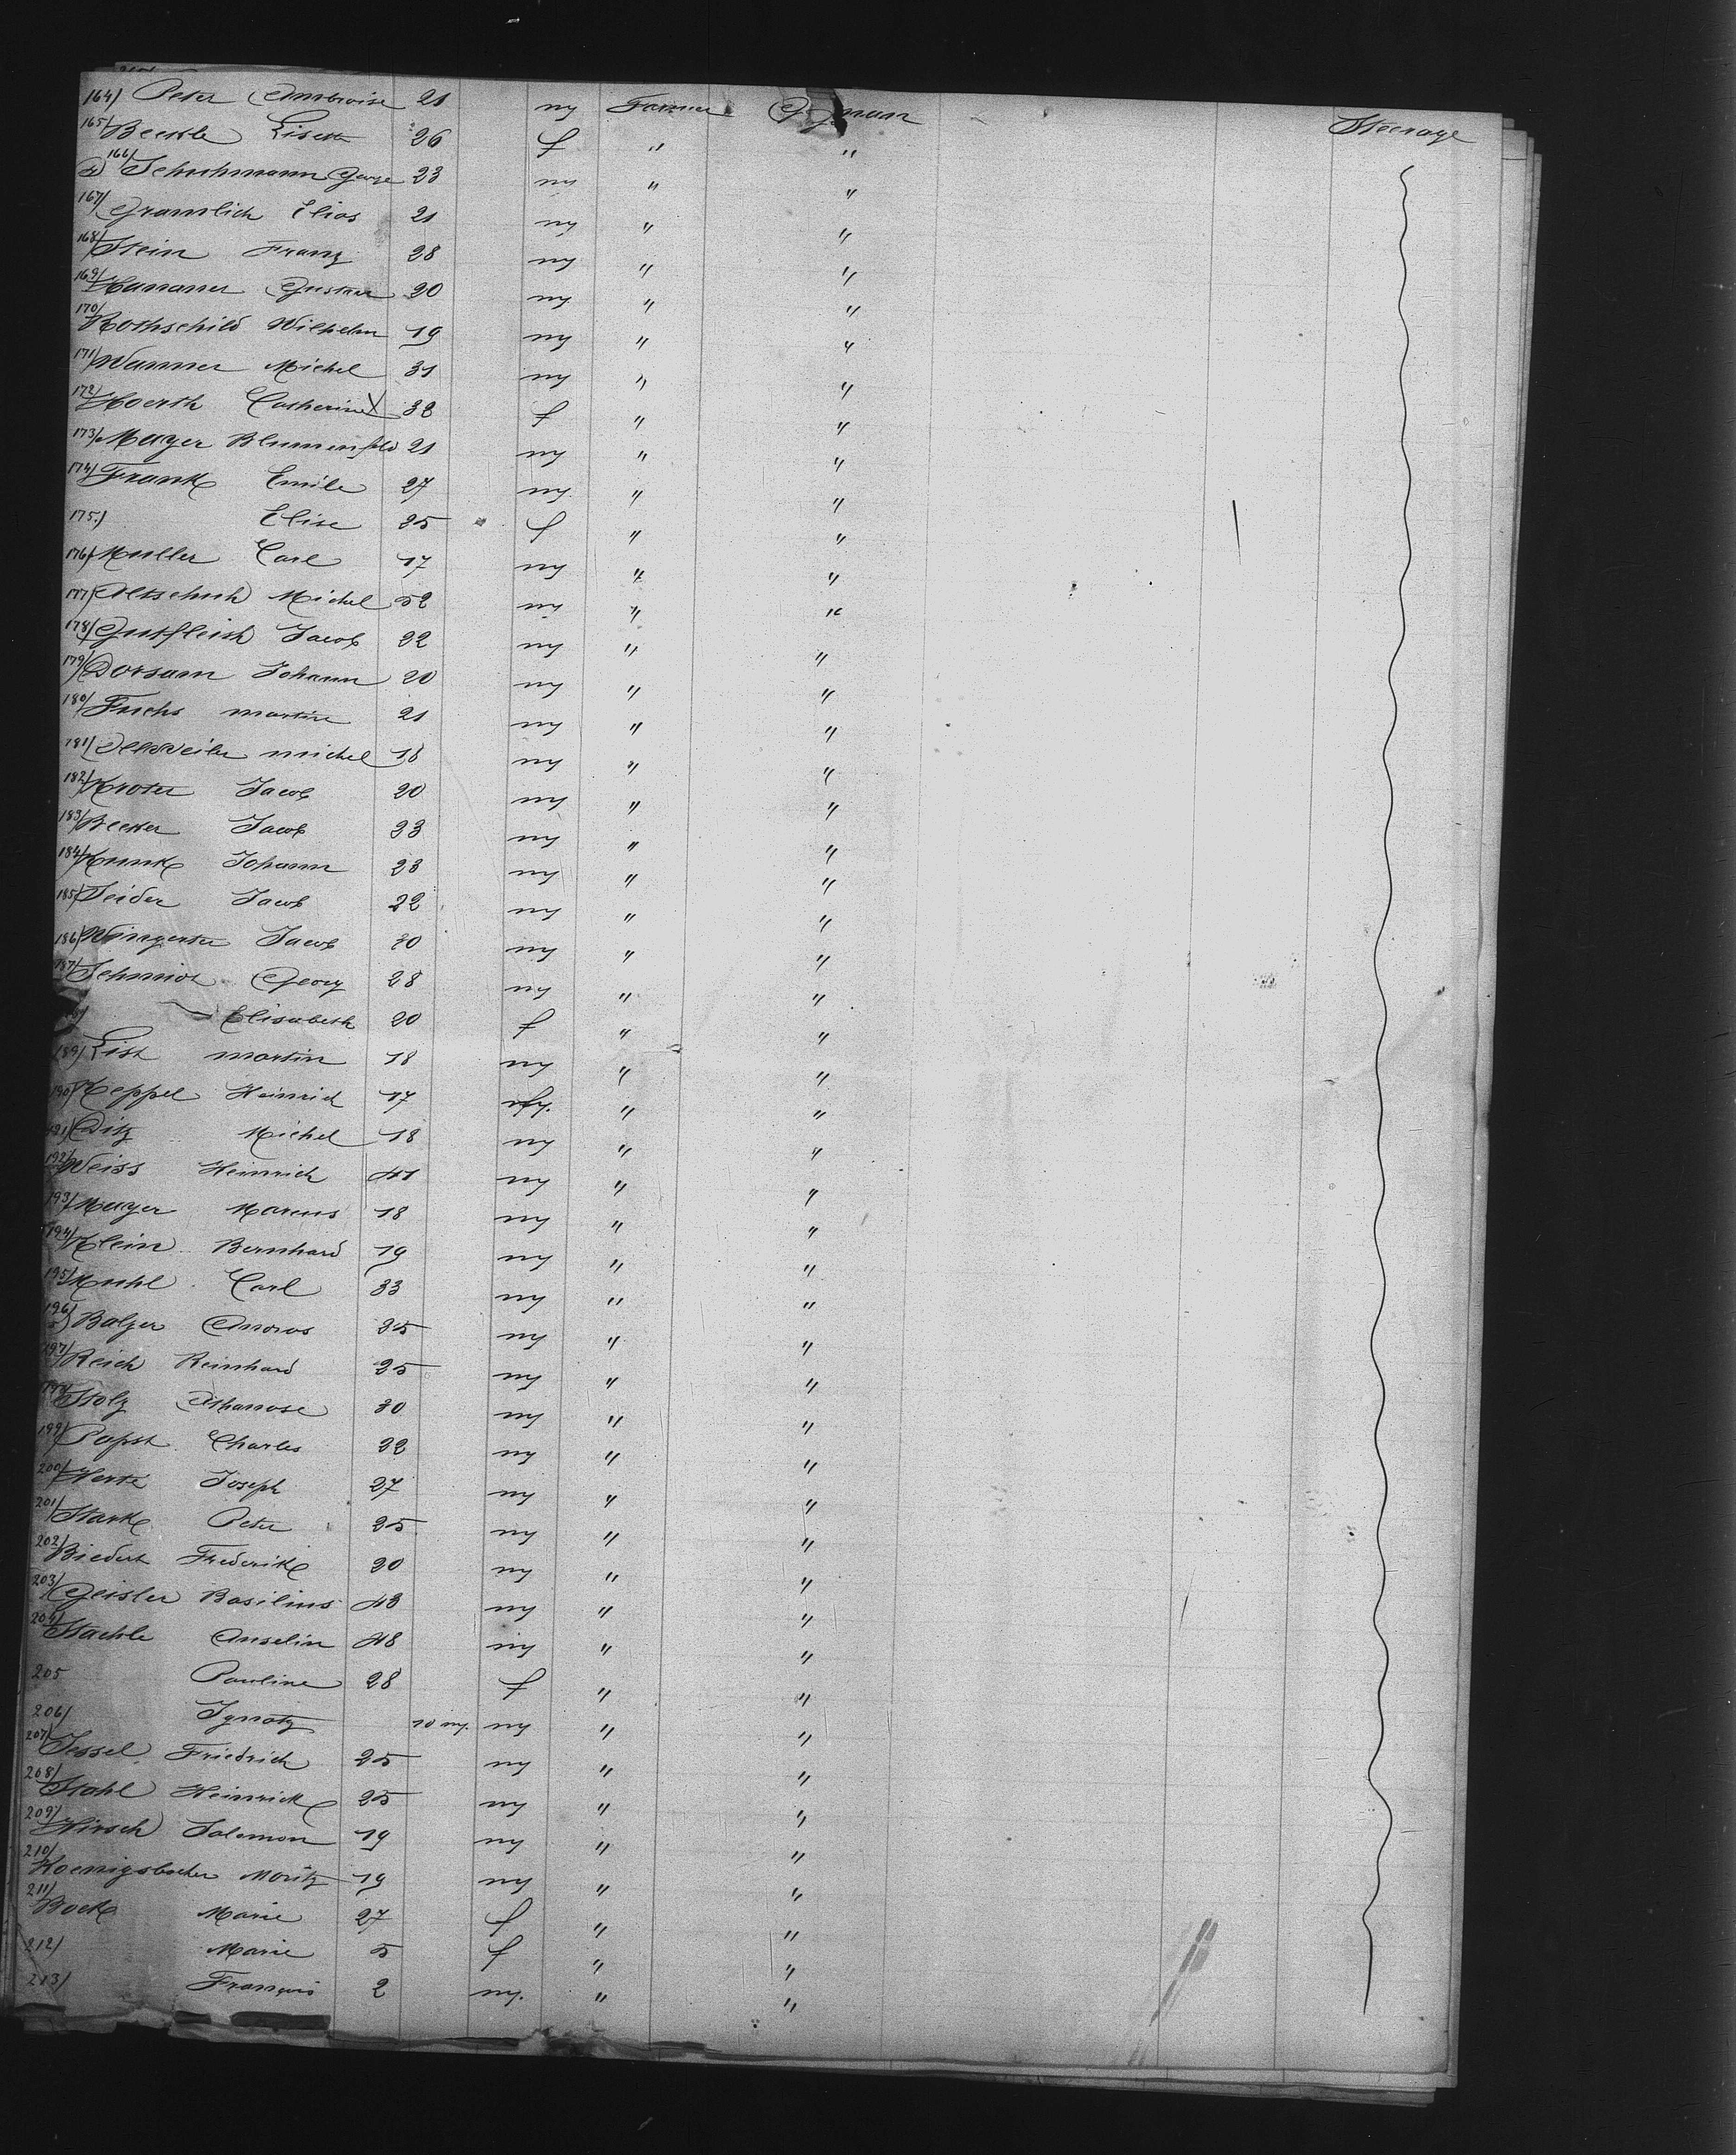 164) Peter Ambroise 21 m Farmer German Steerage
165) Beckle Lisette 26 f " "
166) Schuhmann George 23 m " "
167) Gramlich Elias 21 m " "
168) Stein Franz 28 m " "
169) Hanauer Gustav 20 m " "
170) Rothschild Wilhelm 19 m " "
171) Wanner Michel 31 m " "
172) Hoerth Catherine X 32 f " "
173) Mayer Blumenfeld 21 m " "
174) Frank Emile 27 m " "
175.) Elise 25 f " "
176) Muller Carl 17 m " "
177) Altschuh Michel 52 m " "
178) Gutfleisch Jacob 22 m " "
179) Dorsam Johann 20 m " "
180) Fuchs martin 21 m " "
181) michel 18 m " "
182) Kroter Jacob 20 m " "
183) Becker Jacob 23 m " "
184) Kunk Johann 23 m " "
185) Seider Jacob 22 m " "
186) Wingerter Jacob 30 m " "
187) Schmidt Georg 28 m " "
Elisabeth 20 f " "
189) List martin 18 m " "
190) Keppel Heinrich 17 m. " "
191) Ditz Michel 18 m " "
192) Weiss Heinrich 41 m " "
193) Mayer Marcus 18 m " "
194) Klein Bernhard 19 m " "
195) Muhl Carl 33 m " "
196) Balzer Andras 35 m " "
197) Reich Reinhard 25 m " "
Stolz Athanase 30 m " "
199) Papst Charles 22 m " "
200) Joseph 27 m " "
201) Stark Peter 25 m " "
202) Biedert Frederik 20 m " "
203) Geisler Basilius 43 m " "
204) Staehle Anselin 48 m " "
205 Pauline 28 f " "
206) Ignatz 10 m. m " "
207) Jessel Friedrich 25 m " "
208) Stahl Heinrich 25 m " "
209) Hirsch Salomon 19 m " "
210) Koenigsbacher Moritz 19 m " "
211) Bock Marie 27 f " "
212) Marie 5 f " "
213) François 2 m. " "